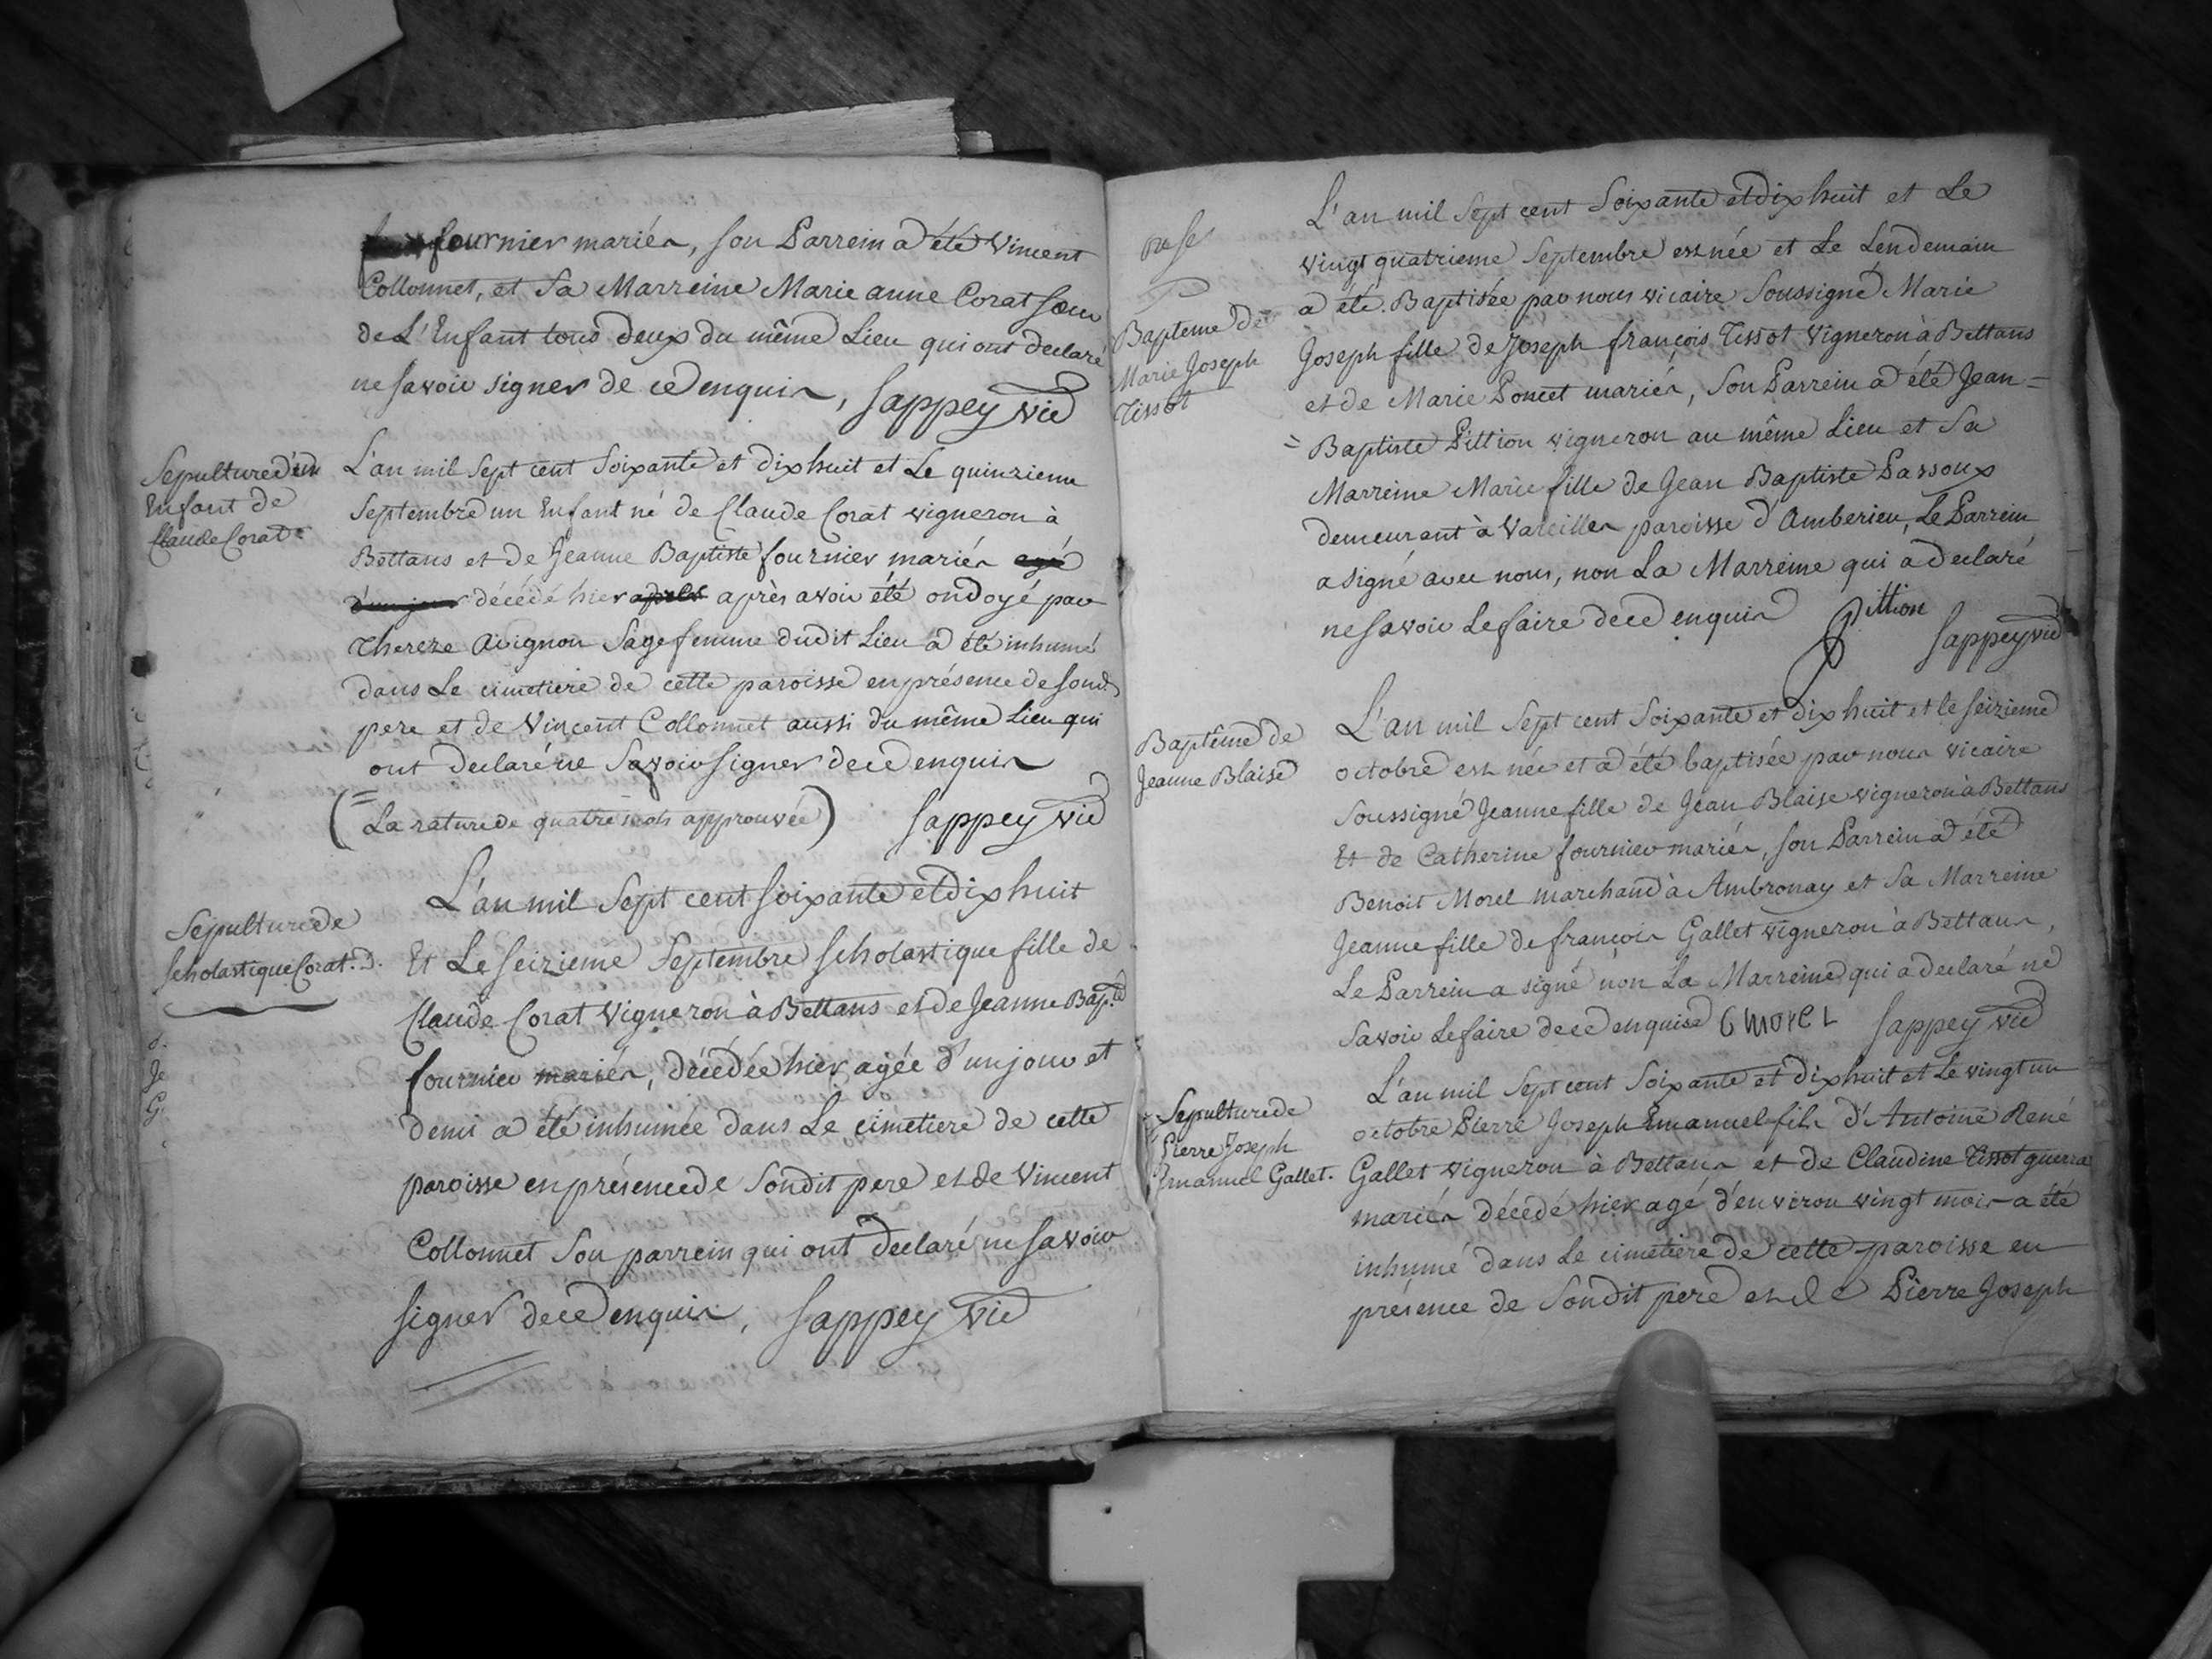 fournier mariés, son Parrein a été Vincent
Collonnet, et Sa Marreine Marie anne Corat sœur
de L'Enfant tous deux du même Lieu qui ont declaré
ne savoir signer de ce enquis, Sappey vic
Sepulture d'un
Enfant de
Claude Corat
L'an mil Sept cent Soixante et dix huit et Le quinzieme
Septembre un Enfant né de Claude Corat vigneron à
Bettans et de Jeanne Baptiste fournier mariés agé
d'un jour décédé hier après avoir été ondoyé par
Thereze Avignon Sage femme dudit Lieu a été inhumé
dans Le cimetiere de cette paroisse en présence de sond.
pere et de Vincent Collonnet aussi du même Lieu qui
ont declaré ne Savoir signer de ce enquis
(La rature de quatre mots approuvée) Sappey vic
Sepulture de
Scholastique Corat
L'an mil Sept cent soixante et dix huit
Et Le seizieme Septembre Scholastique fille de
Claude Corat Vigneron à Bettans et de Jeanne Bap.te
fournier mariés, décédée hier agée d'un jour et
demi a été inhumée dans Le cimetiere de cette
paroisse en présence de Sondit pere et de Vincent
Collonnet Son parrein qui ont declaré ne savoir
signer de ce enquis, Sappey Vic
Bapteme de
Marie Joseph
Tissot
L'an mil Sept cent Soixante et dix huit et Le
vingt quatrieme Septembre est née et Le Lendemain
a été Baptisée par nous vicaire Soussigné Marie
Joseph fille de Joseph françois Tissot Vigneron à Bettans
et de Marie Poncet mariés, Son Parrein a été Jean =
= Baptiste Pittion vigneron au même Lieu et Sa
Marreine Marie fille de Jean Baptiste Passoux
demeurant à Vareilles paroisse d'Amberieu, Le Parrein
a signé avec nous, non La Marreine qui a declaré
ne savoir Le faire de ce enquis Pittion
Sappey vic
Baptême de
Jeanne Blaise
L'an mil Sept cent Soixante et dix huit et le seizieme
octobre est née et a été baptisée par nous vicaire
Soussigné Jeanne fille de Jean Blaise vigneron à Bettans
Et de Catherine fournier mariés, son Parrein a été
Benoit Morel marchand à Ambronay et Sa Marreine
Jeanne fille de françois Gallet vigneron à Bettans,
Le Parrein a signé non La Marreine qui a declaré ne
Savoir Le faire de ce enquise morel Sappey vic
Sepulture de
Pierre Joseph
Emanuel Gallet.
L'an mil Sept cent Soixante et dix huit et Le vingt un
octobre Pierre Joseph Emanuel fils d'Antoine René
Gallet vigneron à Bettans et de Claudine Tissot guerra
mariés décédé hier agé d'environ vingt mois a été
inhumé dans Le cimetiere de cette paroisse en
présence de Sondit pere et de Pierre Joseph